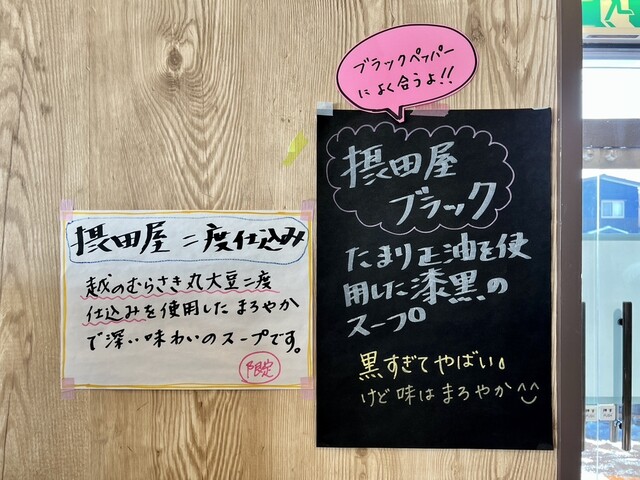 摂田屋 二度仕込み
越のむらさき丸大豆二度
仕込みを使用したまろやか
で深い味わいのスープです。
限定
ブラックペッパー
によく合うよ!!
摂田屋
ブラック
たまり正油を使
用した漆黒の
スープ
黒すぎてやばい
けど味はまろやか^^